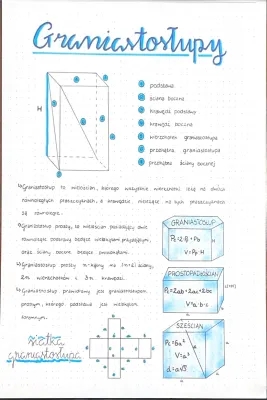 Graniastosłupy
H
podstawa
ściana boczna
krawędź podstawy
krawędź boczna
wierzchołek graniastosłupa
przekątna graniastosłupa
przekątna ściany bocznej
Graniastosłup to wielościan, którego wszystkie wierzchołki leżą na dwóch
równoległych płaszczyznach, a krawędzie nieleżące na tych płaszczyznach
są równoległe.
Graniastosłup prosty, to wielościan posiadający dwie
równoległe podstawy będące wielokątami przystającymi,
oraz ściany boczne będące prostokątami.
Graniastosłup prosty n-kątny ma (n+2) ściany,
2n wierzchołków i 3n krawędzi.
Graniastosłup prawidłowy jest graniastosłupem
prostym, którego podstawą jest wielokąt
foremny.
GRANIASTOSŁUP
Pc=2·Pp+Pb
V=Pp·H
PROSTOPADŁOŚCIAN
Pc=2ab+2ac+2bc
V=a·b·c
SZEŚCIAN
Pc=6a²
V=a³
d=a√3
siatka
graniastosłupa